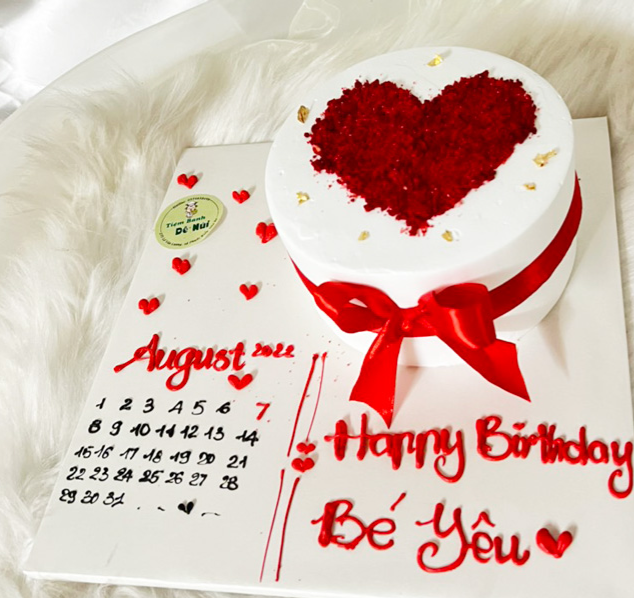 Tiệm Bánh
Dê Núi
August 2022
1 2 3 4 5 6 7
8 9 10 11 12 13 14
15 16 17 18 19 20 21
22 23 24 25 26 27 28
29 30 31
Happy Birthday
Bé Yêu